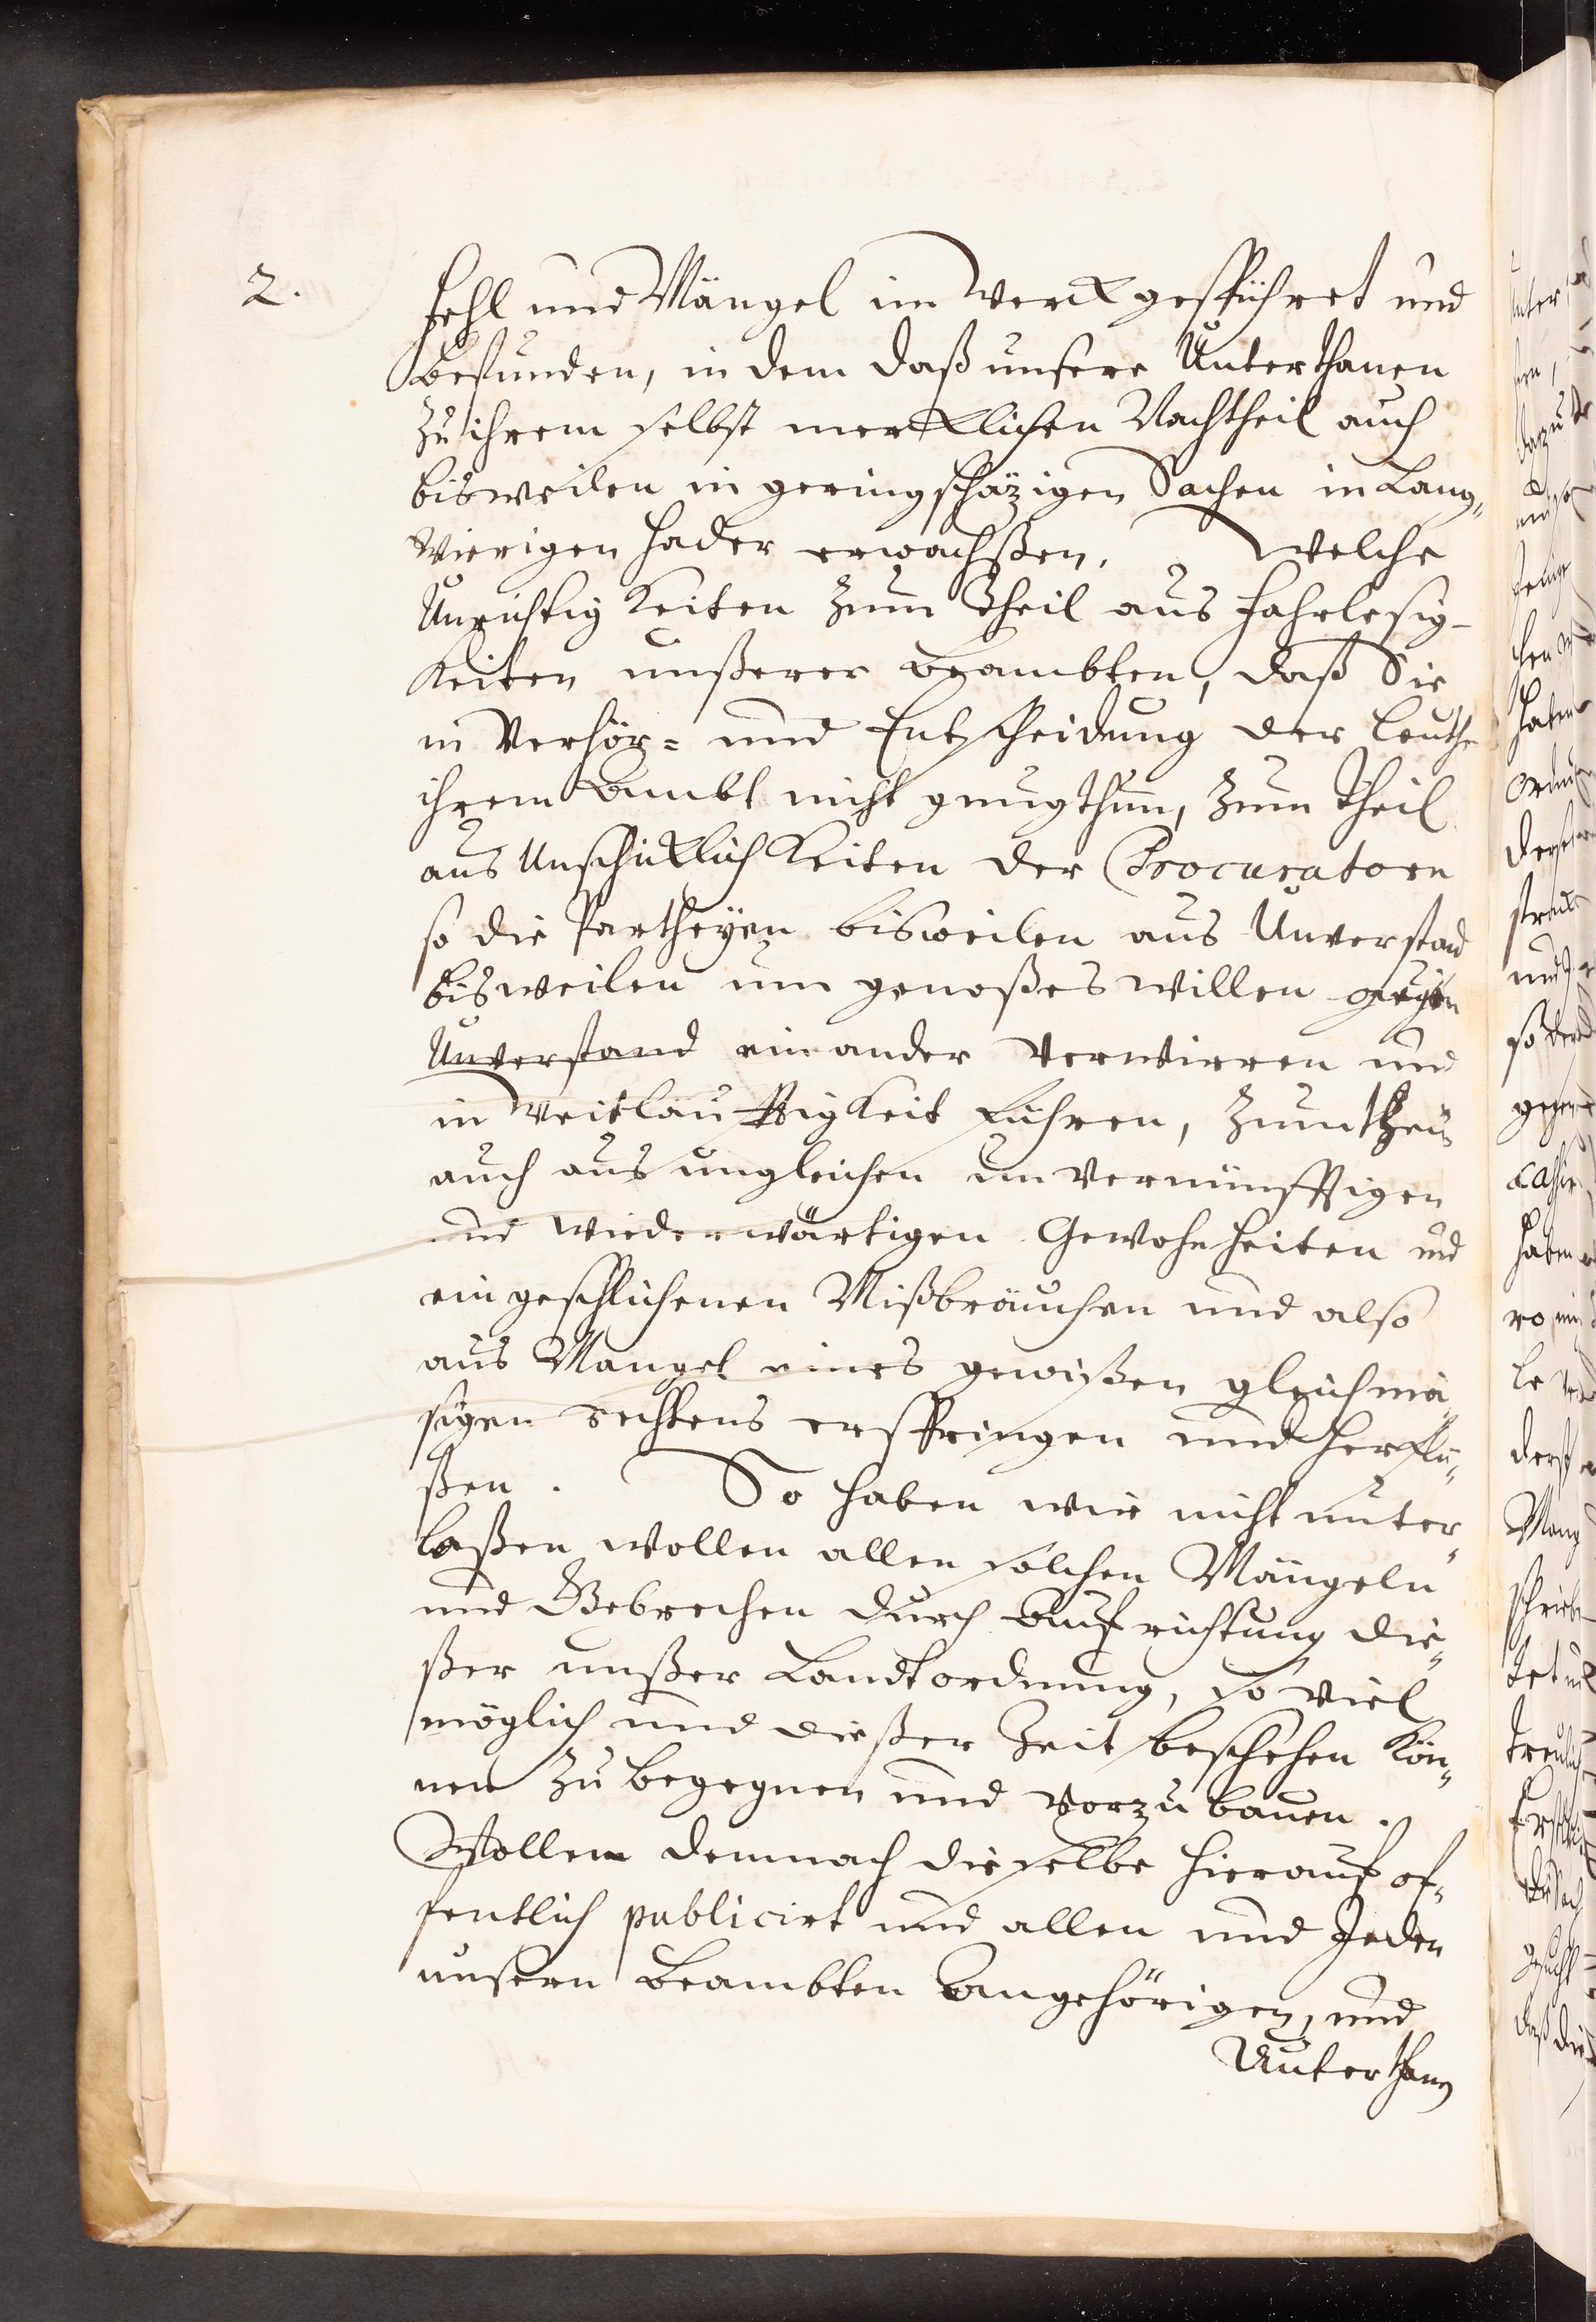 2.
Fehl und Mängel im Werck gespühret und
befunden, in dem daß unsere Unterthanen
zu ihrem selbst mercklichen Nachtheil auch
bisweilen in geringschäzigen Sachen in Lang„
wierigen hader erwachßen. Welche
Unrichtigkeiten zum Theil aus fahrlesig-
keiten unßerer Beambten, daß Sie
in Verhör= und Entscheidung der leuthe
ihrem Ambt nicht gnugthun, zum theil
aus Unschicklichkeiten der Procuratorn
so die Partheyen bisweilen aus Unverstand
bisweilen um genoßes willen gegen
Unverstand ein ander verwirren und
in Weitläufftigkeit führen, zum theil
auch aus ungleichen unvernünfftigen
und wiederwärtigen Gewohnheiten und
eingeschlichenen Mißbräuchen und also
aus Mangel eines gewißen gleichmä„
sigen rechtens erspringen und herflü„
ßen. So haben wir nicht unter„
laßen wollen allen solchen Mängeln
und Gebrechen durch Aufrichtung die„
ßer unßer Landtordnung, so viel
möglich und dießer Zeit beschehen kön„
nen zu begegnen und vorzubauen.
Wollen demnach dieselbe hierauf of„
fentlich publicirt und allen und Jeden
unsern Beambten Angehörigen, und
Unterthanen